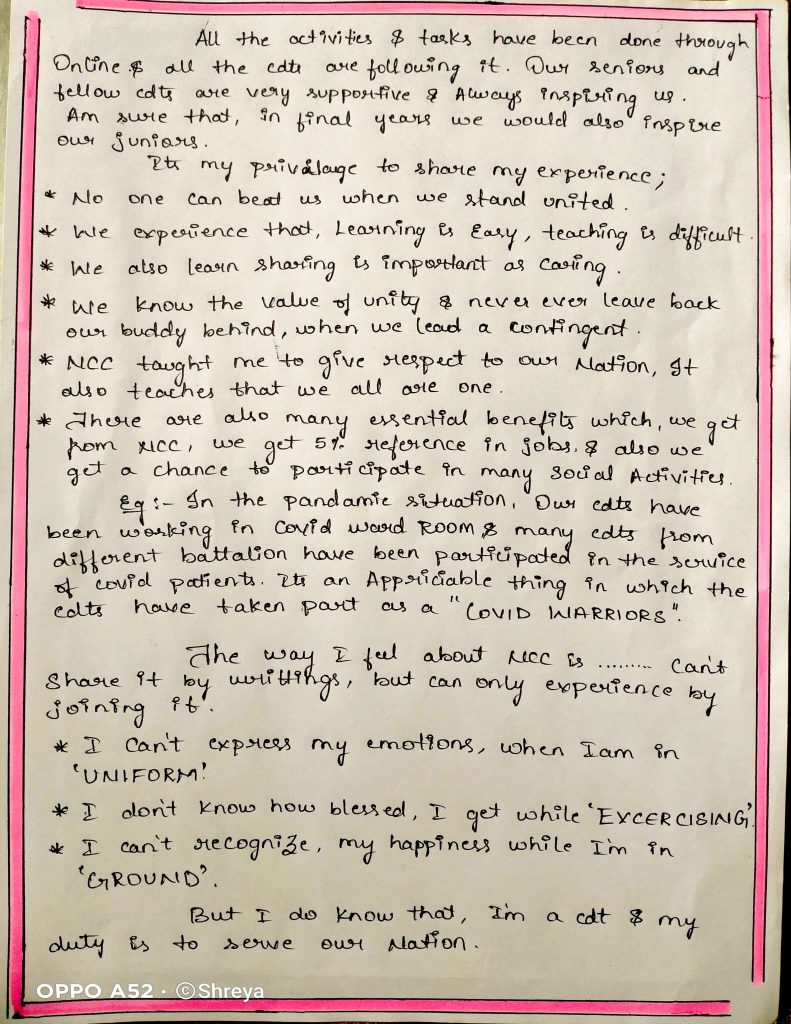 All the activities & tasks have been done through
Online & all the cdts are following it. Our seniors and
fellow cdts are very supportive & Always inspiring us.
Am sure that, in final years we would also inspire
our juniors.
Its my privalage to share my experience;
* No one can beat us when we stand united.
* We experience that, Learning is Easy, teaching is difficult.
* We also learn sharing is important as caring.
* We know the value of unity & never ever leave back
our buddy behind, when we lead a contingent.
* NCC taught me to give respect to our Nation, It
also teaches that we all are one.
* There are also many essential benefits which, we get
from NCC, we get 5% reference in jobs. & also we
get a chance to participate in many Social Activities.
Eg :- In the pandamic situation, Our cdts have
been working in Covid ward ROOM & many cdts from
different battalion have been participated in the service
of covid patients. Its an Appriciable thing in which the
cdts have taken part as a "COVID WARRIORS".
The way I feel about NCC is ......... Can't
Share it by writtings, but can only experience by
joining it.
* I Can't express my emotions, when Iam in
'UNIFORM'
* I don't know how blessed, I get while 'EXCERCISING'
* I can't recognize, my happiness while I'm in
'GROUND'.
But I do know that, I'm a cdt & my
duty is to serve our Nation.
OPPO A52 · ©Shreya